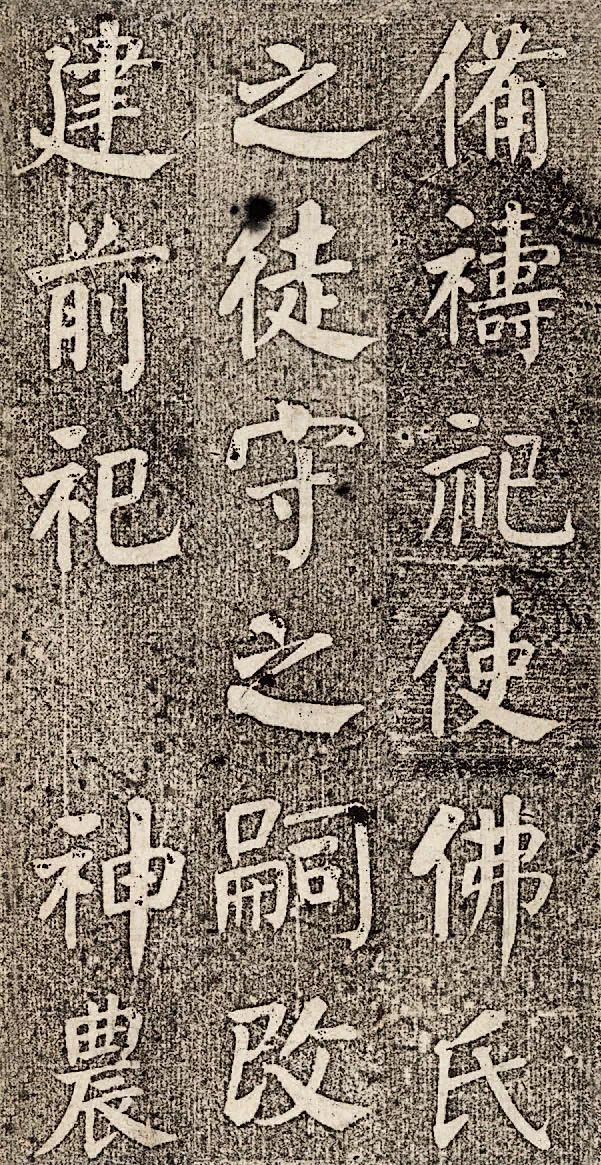 備禱祀使佛氏
之徒守之嗣改
建前祀神農